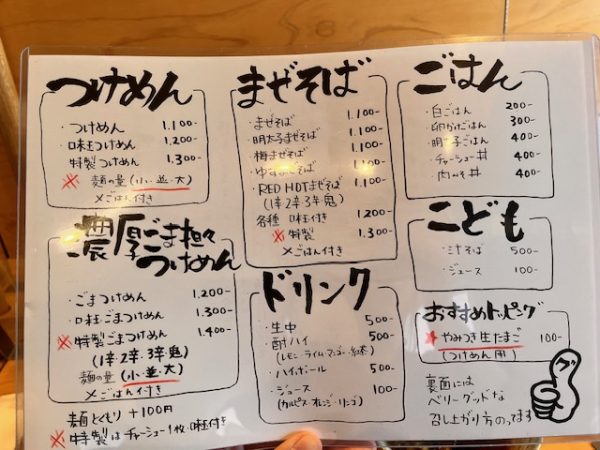 つけめん
・つけめん 1.100-
・味玉つけめん 1.200-
特製つけめん 1.300-
※ 麺の量(小・並・大)
〆ごはん付き
濃厚ごま担々つけめん
・ごまつけめん 1.200-
・味玉ごまつけめん 1.300-
※特製ごまつけめん 1.400-
(1辛2辛3辛鬼)
麺の量(小・並・大)
〆ごはん付き
麺大もり +100円
※特製はチャーシュー1枚、味玉付き
まぜそば
・まぜそば 1.100-
・明太子まぜそば 1.100-
・梅まぜそば 1.100-
・ゆずまぜそば 1.100-
・RED HOTまぜそば 1.100-
(1辛2辛3辛鬼)
各種 味玉付き 1.200-
※特製 1.300-
〆ごはん付き
ドリンク
・生中 500-
・酎ハイ 500-
(レモン・ライム・マンゴー・紅茶)
・ハイボール 500-
・ジュース 100-
(カルピス・オレンジ・リンゴ)
ごはん
・白ごはん 200-
・卵かけごはん 300-
・明太子ごはん 400-
・チャーシュー丼 400-
・肉みそ丼 400-
こども
・ミニそば 500-
・ジュース 100-
おすすめトッピング
★やみつき生たまご 100-
(つけめん用)
裏面には
ベリーグッドな
召し上がり方のってます